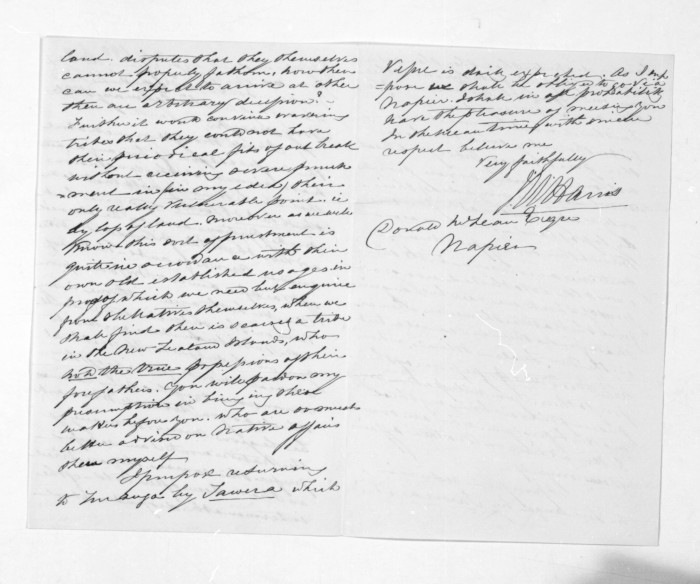 land disputes that they themselves
cannot properly fathom, how then
can we expect to arrive at other
than an arbitrary decision?
Further it would convince warring
tribes that they could not have
their periodical fits of outbreak
without receiving severe punish
ment in (in my idea) their
only really vulnerable point ie
by loss of land. Moreover as we all
know this sort of punishment is
quite in accordance with their
own old established usages in
proof of which we need but enquire
from the Natives themselves, when we
shall find there is scarcely a tribe
in the New Zealand Islands, who
hold the true possessions of their
forefathers. You will pardon my
presumption in bringing these
matters before you. who are so much
better advised on Native affairs
than myself
I purpose returning
to Turanga by Tawera which
Vessel is daily expected. As I sup
=pose we shall be obliged to go via
Napier. I shall in all probability
have the pleasure of meeting you
In the mean time with much
respect believe me
Very faithfully
JW Harris
Donald McLean Esqre
Napier